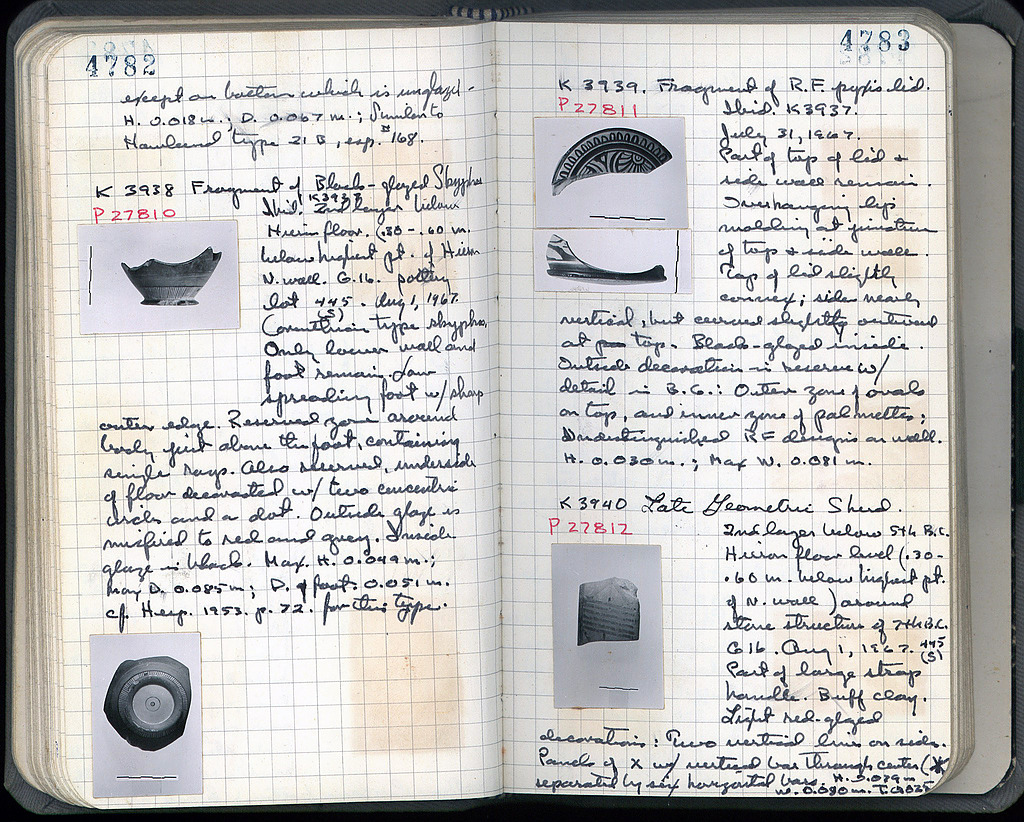 4782
except on bottom which is unglazed.
H. 0.018 m.; D. 0.067 m.; Similar to
Howland type 21 B, esp. # 168.
K 3938 Fragment of Black-glazed Skyphos
P 27810
Ibid. K3937 2nd layer below
Hieron floor. (.30-.60 m.
below highest pt. of Hieron
N. wall. G.16. pottery
lot 445. Aug 1, 1967.
(S)
Corinthian type skyphos.
Only lower wall and
foot remain. Low
spreading foot w/ sharp
outer edge. Reserved zone around
body just above the foot, containing
single rays. Also reserved, underside
of floor decorated w/ two concentric
circles and a dot. Outside glaze is
misfired to red and grey. Inside
glaze is black. Max. H. 0.049 m.;
Max D. 0.085 m; D. of foot: 0.051 m.
cf. Hesp. 1953. p. 72. for this type.
4783
K 3939. Fragment of R.F. pyxis lid.
P 27811
Ibid. K3937.
July 31, 1967.
Part of top of lid +
side wall remain.
Overhanging lip
molding at juncture
of top + side wall.
Top of lid slightly
convex; side nearly
vertical, but curved slightly outward
at top. Black-glazed inside.
Outside decoration in reserve w/
detail in B.G.: Outer zone of ovals
on top, and inner zone of palmettes;
Undistinguished RF designs on wall.
H. 0.030 m.; Max W. 0.081 m.
K 3940 Late Geometric Sherd.
P 27812
2nd layer below 5th B.C.
Hieron floor level (.30-
.60 m. below highest pt.
of N. wall) around
stone structure of 7th B.C.
G 16. Aug 1, 1967. 445
(S)
Part of large strap
handle. Buff clay.
Light red-glazed
decorations: Two vertical lines on side.
Panels of X w/ vertical bar through center (
separated by six horizontal bars. H. 0.079 m
W. 0.080 m. T.